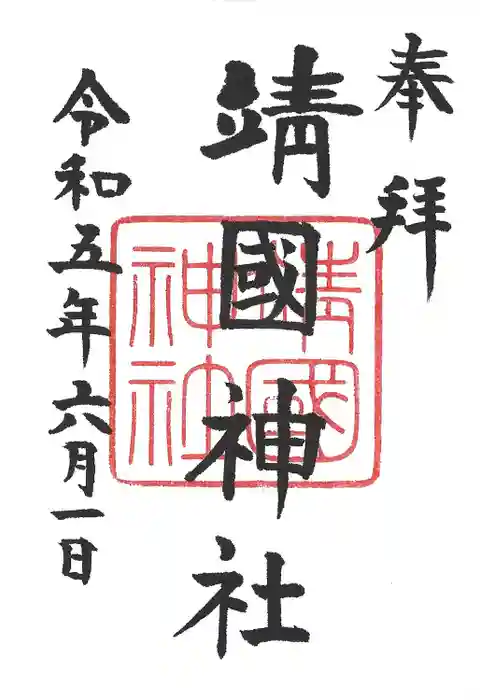 奉拝
靖國神社
靖國
神社
令和五年六月一日